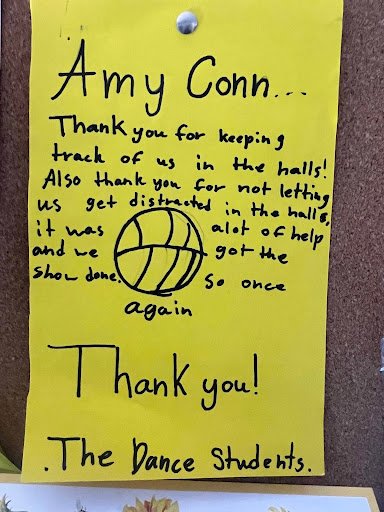 Amy Conn...
Thank you for keeping
track of us in the halls!
Also thank you for not letting
us get distracted in the halls,
it was alot of help
and we got the
show done. So once
again
Thank you!
.The Dance Students.